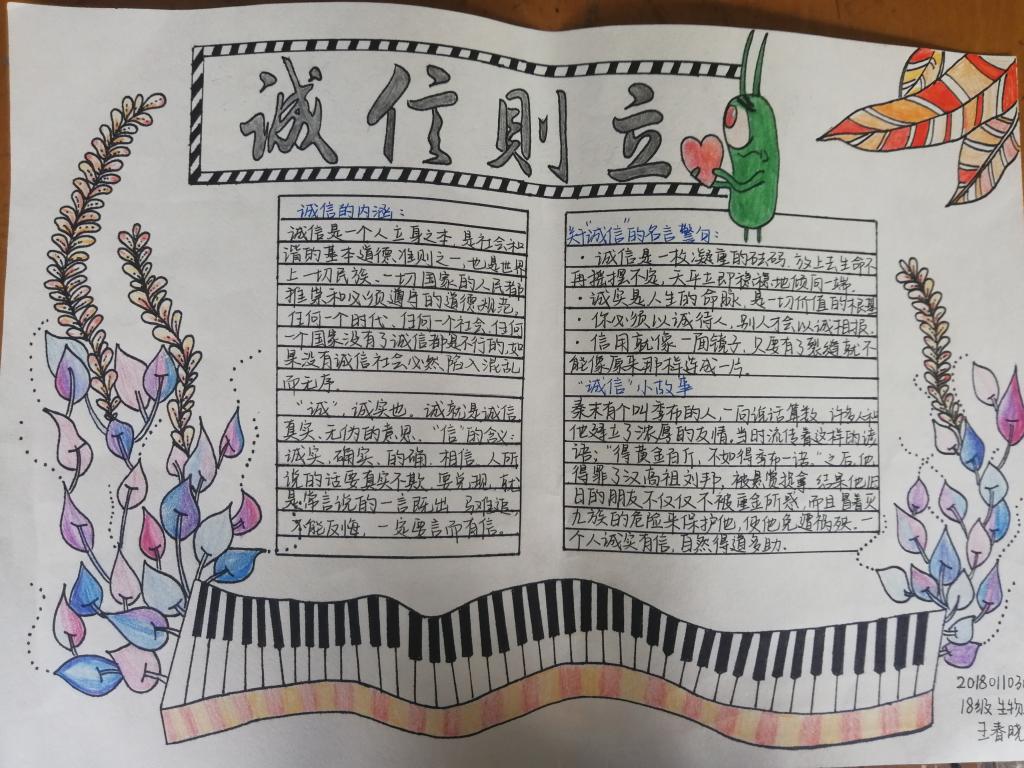 诚信則立
诚信的内涵：
诚信是一个人立身之本，是社会和
谐的基本道德准则之一，也是世界
上一切民族、一切国家的人民都
推崇和必须遵守的道德规范，
任何一个时代，任何一个社会，任何
一个国家没有了诚信都是不行的，如
果没有诚信社会必然陷入混乱
而无序。
“诚”，诚实也。诚就是诚信
真实、无伪的意思、“信”的含义：
诚实、确实、的确、相信。人所
说的话要真实不欺，要兑现，就
是常言说的一言既出，马难追
不能反悔，一定要言而有信。
关于“诚信”的名言警句：
·诚信是一枚凝重的砝码，放上去生命不
再摇摆不定，天平立即稳稳地倾向一端
·诚实是人生的命脉，是一切价值的根基
·你必须以诚待人，别人才会以诚相报
·信用就像一面镜子，只要有了裂缝就不
能像原来那样连成一片。
“诚信”小故事
秦末有个叫季布的人，一向说话算数，许多人和
他建立了浓厚的友情，当时流传着这样的谚
语：“得黄金百斤，不如得季布一诺。”之后，他
得罪了汉高祖刘邦，被悬赏捉拿，结果他旧
日的朋友不仅仅不被重金所惑，而且冒着灭
九族的危险来保护他，使他免遭祸殃。一
个人诚实有信，自然得道多助。
2018011030
18级生物
王春晓